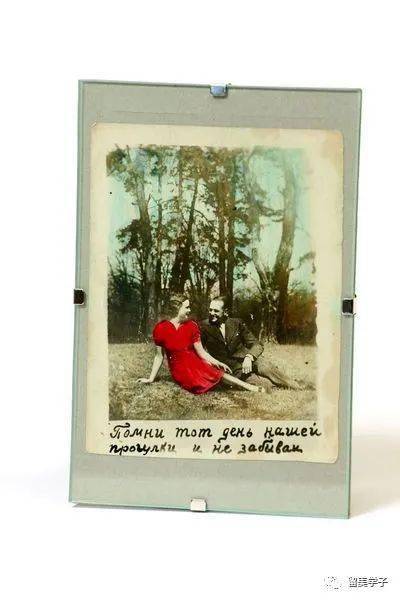 Помни тот день нашей
прогулки и не забывай
留美学子